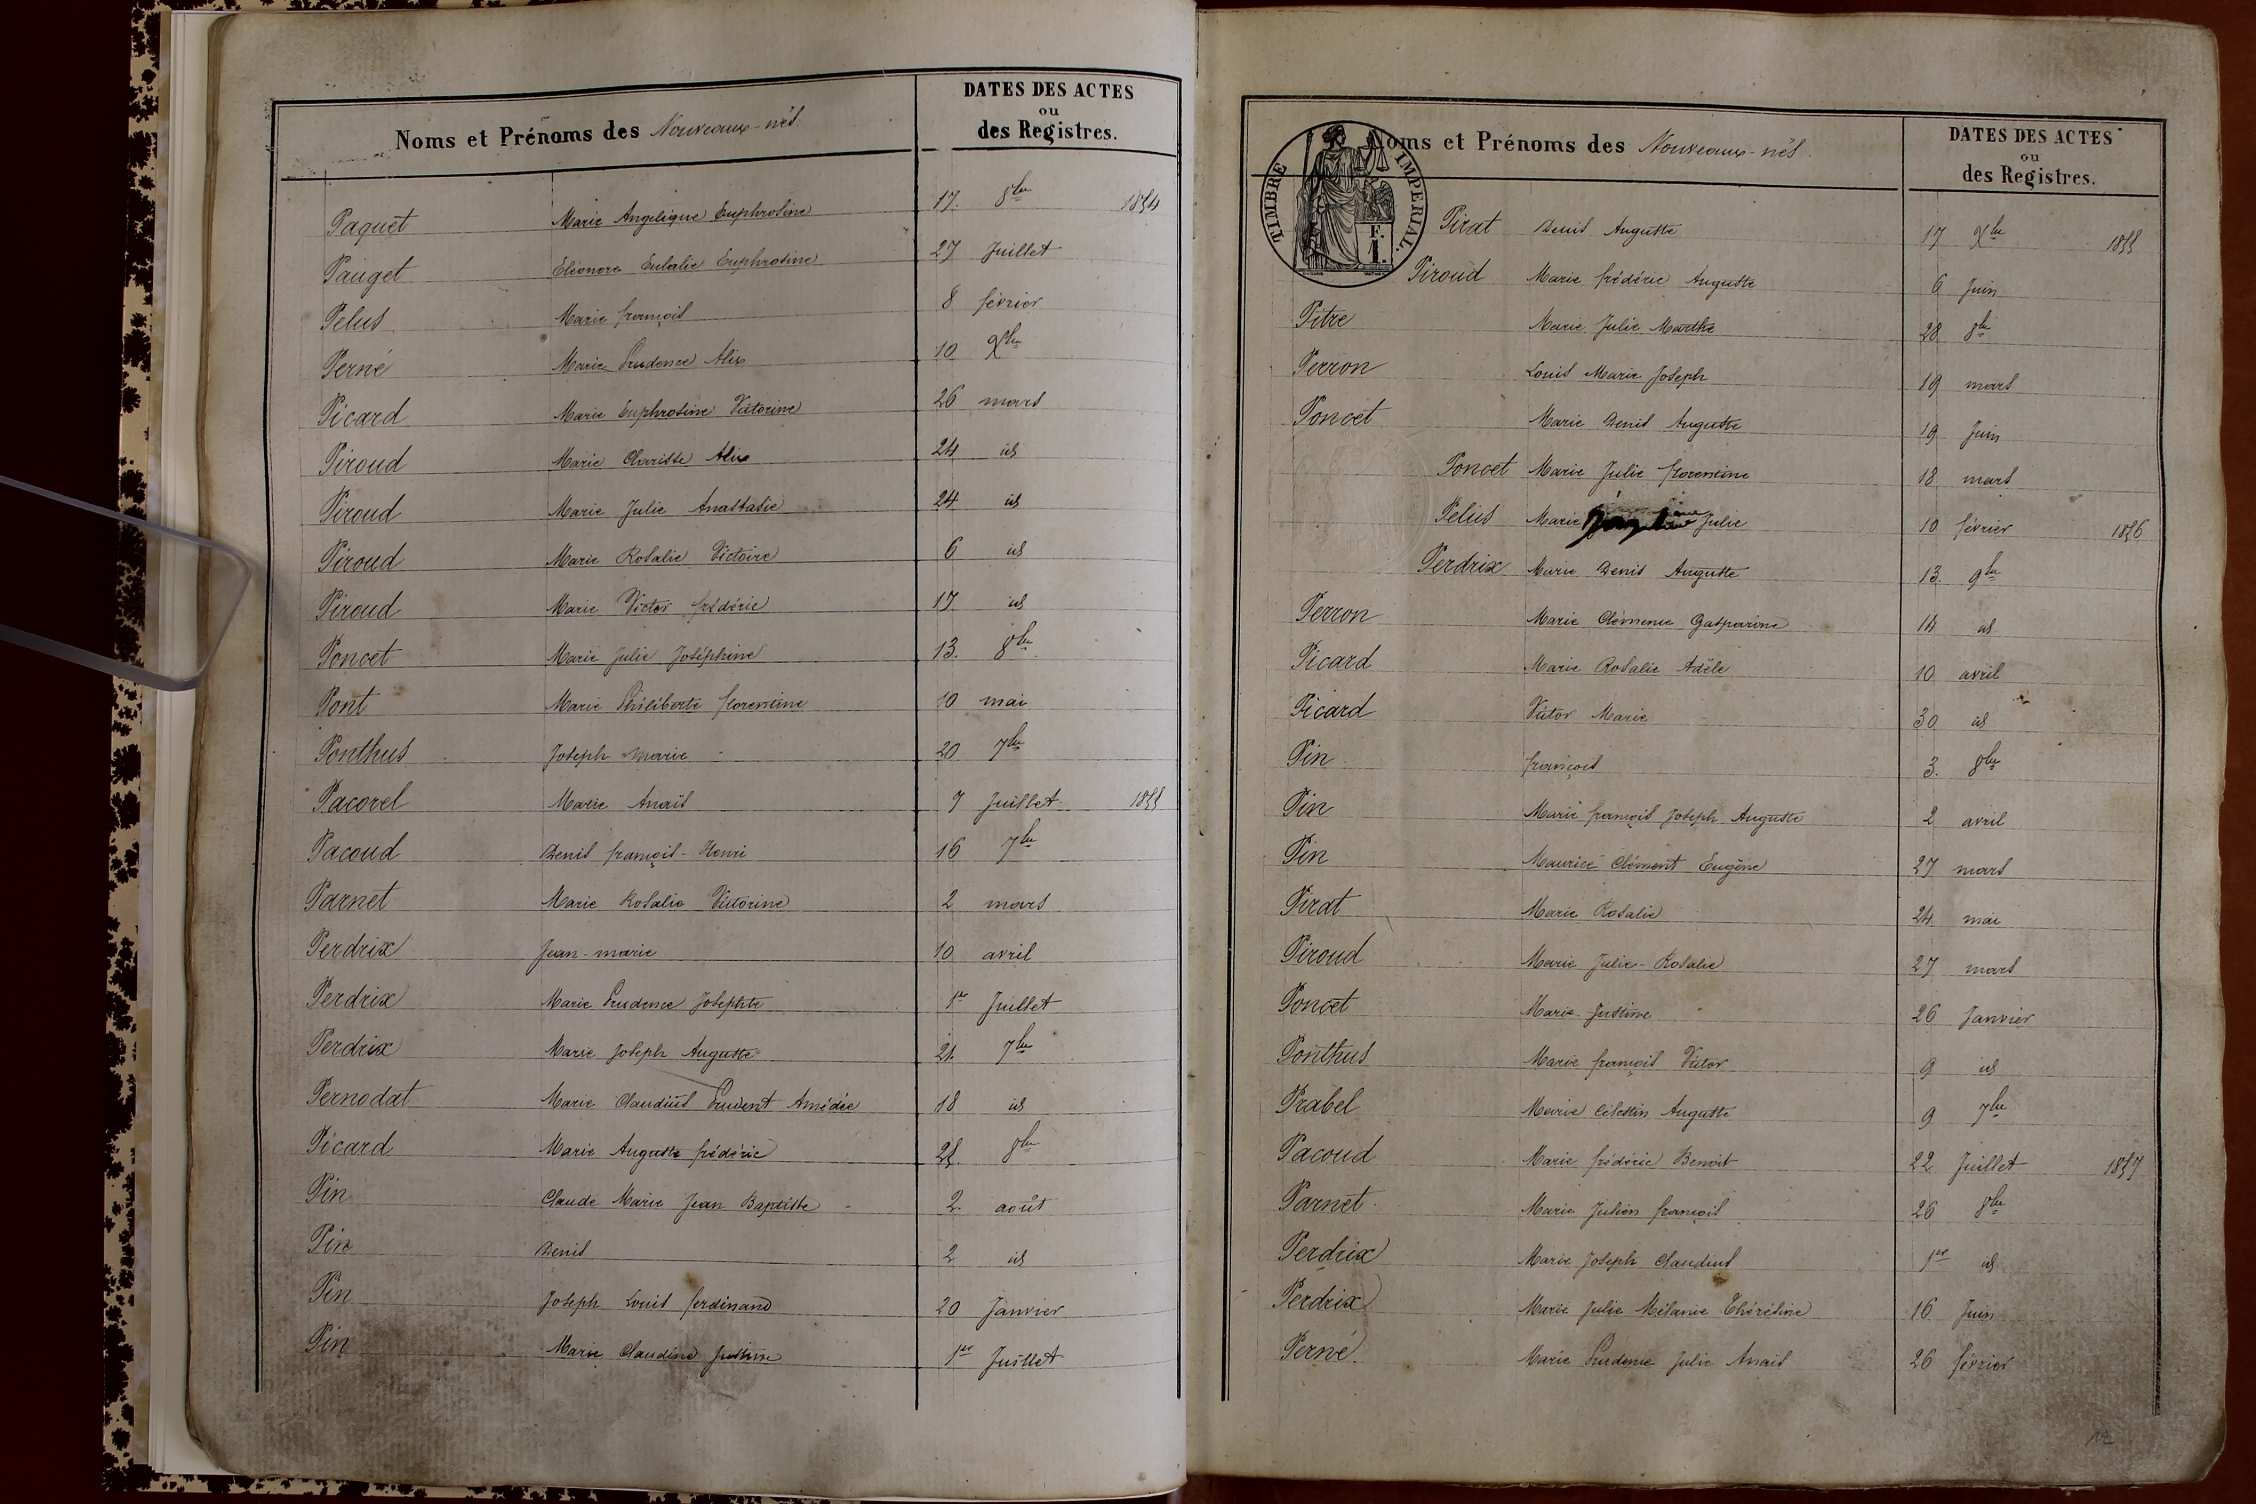 Noms et Prénoms des Nouveaux-nés
DATES DES ACTES
ou
des Registres.
Paquet Marie Angelique Euphrosine 17. 8bre 1854
Pauget Eléonore Eulalie Euphrosine 27 Juillet
Pelus Marie françois 8 février
Perné Marie Prudence Alix 10 Xbre
Picard Marie Euphrosine Victorine 26 mars
Piroud Marie Clarisse Alix 24 id
Piroud Marie Julie Anastasie 24 id
Piroud Marie Rosalie Victoire 6 id
Piroud Marie Victor frédéric 17 id
Poncet Marie Julie Joséphine 13. 8bre
Pont Marie Philiberte florentine 10 mai
Ponthus Joseph Marie 20 7bre
Pacorel Marie Anaïs 7 Juillet 1855
Pacoud Denis françois-Henri 16 7bre
Parnet Marie Rosalie Victorine 2 mars
Perdrix Jean-marie 10 avril
Perdrix Marie Prudence Josephte 1er Juillet
Perdrix Marie Joseph Auguste 21. 7bre
Pernodat Marie Claudius Prudent Amédée 18 id
Picard Marie Auguste frédéric 25. 8bre
Pin Claude Marie Jean Baptiste 2. août
Pin Denis 2 id
Pin Joseph Louis ferdinand 20 Janvier
Pin Marie Claudine Justine 1er Juillet
TIMBRE IMPERIAL.
F.
1.
Noms et Prénoms des Nouveaux-nés.
DATES DES ACTES
ou
des Registres.
Pirat Denis Auguste 17 Xbre 1855
Piroud Marie frédéric Auguste 6 Juin
Pitre Marie Julie Marthe 28 8bre
Perron Louis Marie Joseph 19 mars
Poncet Marie Denis Auguste 19 Juin
Poncet Marie Julie florentine 18 mars
Pelus Marie Julie 10 février 1856
Perdrix Marie Denis Auguste 13. 9bre
Perron Marie Clémence Gasparine 14 id
Picard Marie Rosalie Adèle 10 avril
Picard Victor Marie 30 id
Pin françois 3. 8bre
Pin Marie françois Joseph Auguste 2 avril
Pin Maurice Clément Eugène 27 mars
Pirat Marie Rosalie 24 mai
Piroud Marie Julie-Rosalie 27 mars
Poncet Marie Justine 26 Janvier
Ponthus Marie françois Victor 9 id
Prabel Marie Célestin Auguste 9 7bre
Pacoud Marie frédéric Benoit 22 Juillet 1857
Parnet Marie Julien françois 26 8bre
Perdrix Marie Joseph Claudius 1er id
Perdrix Marie Julie Mélanie Thérésine 16 Juin
Perné Marie Prudence Julie Anaïs 26 février
12